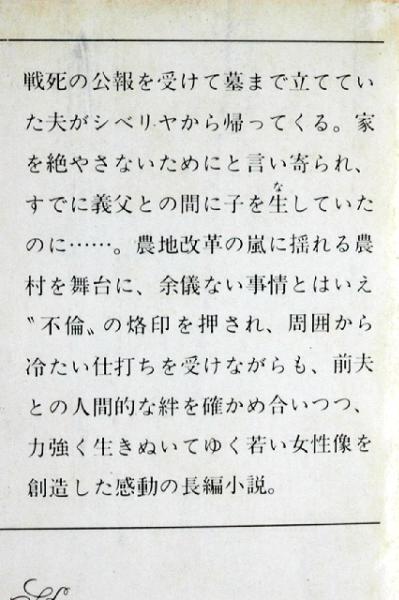 戦死の公報を受けて墓まで立ててい
た夫がシベリヤから帰ってくる。家
を絶やさないためにと言い寄られ、
な
すでに義父との間に子を生していた
のに……。農地改革の嵐に揺れる農
村を舞台に、余儀ない事情とはいえ
〝不倫〟の烙印を押され、周囲から
冷たい仕打ちを受けながらも、前夫
との人間的な絆を確かめ合いつつ、
力強く生きぬいてゆく若い女性像を
創造した感動の長編小説。